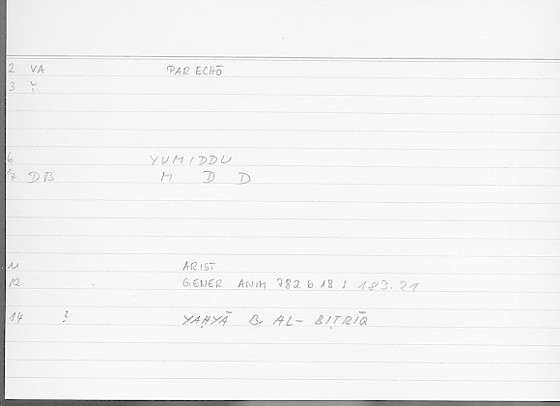 2 VA PARECHŌ
3 ˇ
6 YUMIDDU
7 DB M D D
11 ARIST
12 GENER ANIM 782 b 18 : 183.21
14 ? YAḤYĀ B. AL-BIṬRĪQ